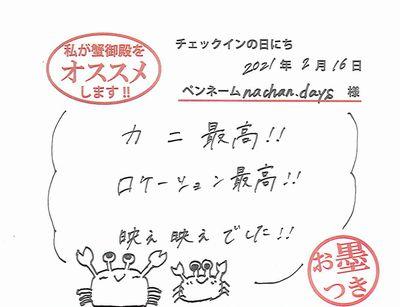 私が蟹御殿を
オススメ
します!!
チェックインの日にち
2021年2月16日
ペンネーム nachan.days 様
カニ最高!!
ロケーション最高!!
映え映えでした!!
お墨
つき